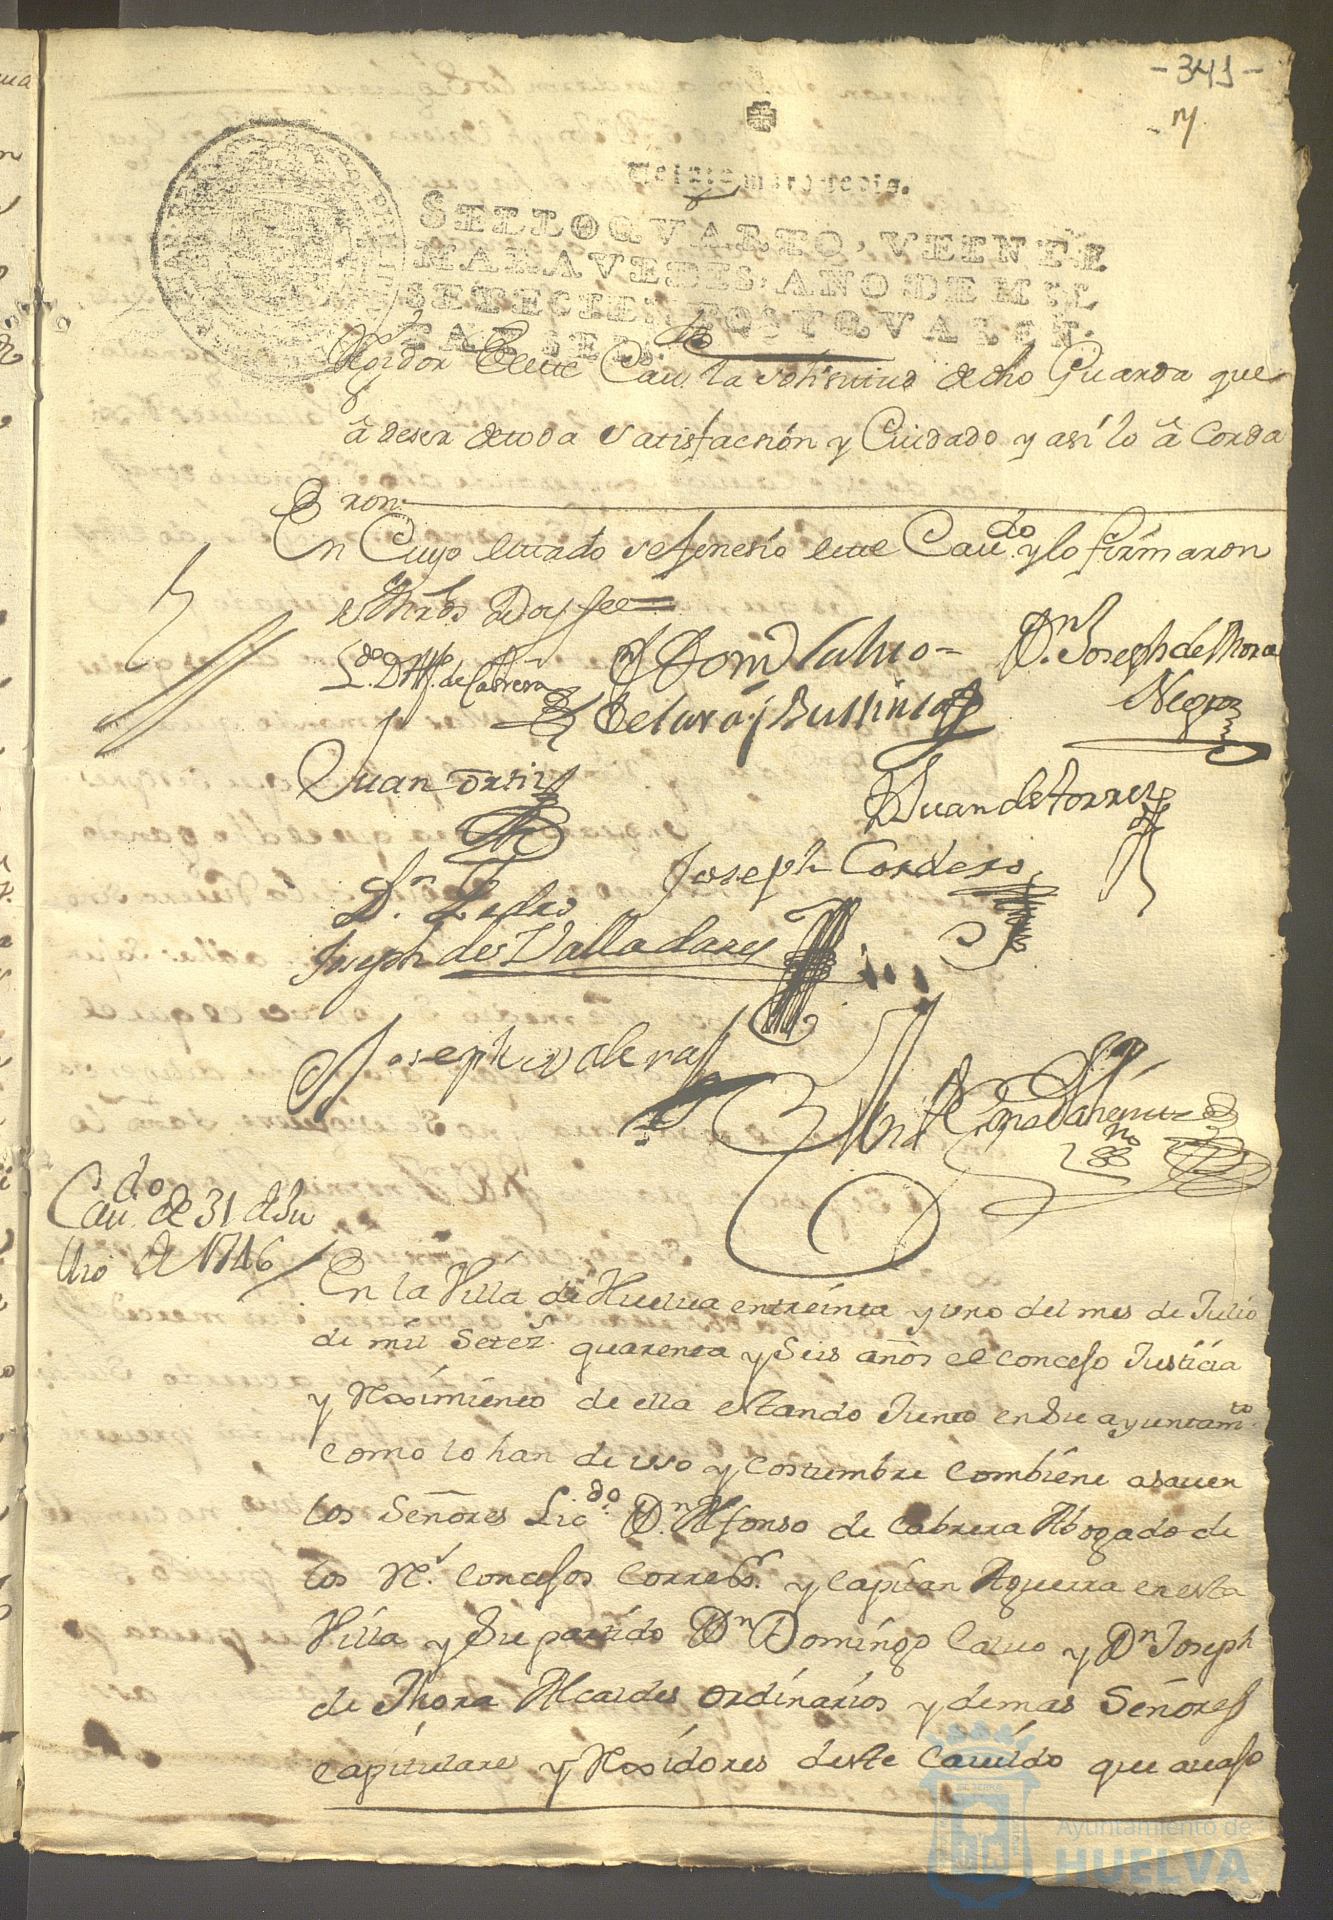 -341-
Veinte maravedis.
SELLO QVARTO, VEINTE
MARAVEDIS, AÑO DE MIL
SETECIENTOS Y QVAREN-
TA Y SEIS.
Rexidor de este Cau.do la solisitud de dho Guarda que
â de ser de toda satisfacsión y Cuidado y así lo âcorda
ron.
En Cuyo estado se fenesio este Cau.do y lo firmaron
sus Mrds Doy fee
L.do D. Alf.o de Cabrera
D.n Dom.o Calvo
D.n Joseph de Mora
Negro
Juan Ortiz
Juan de torres
Joseph Cordero
D.n Pedro
Joseph de Valladares
Joseph Valera
Cau.do de 31 de Ju
lio de 1746
En la Villa de Huelua en treinta y uno del mes de Julio
de mil Setez.s quarenta y Seis años el concejo Justicia
y Reximiento de ella estando Junto en su ayuntam.to
como lo han de uso y costumbre combiene a sauer
los Señores Lic.do D.n Alfonso de Cabrera Abogado de
los R.s Concejos Correx.or y Capitan Aguerra en esta
Villa y su partido D.n Domingo Caluo y D.n Joseph
de Mora Alcaldes ordinarios y demas Señores
capitulares y Rexidores deste Cauildo que auajo
Ayuntamiento de
HUELVA